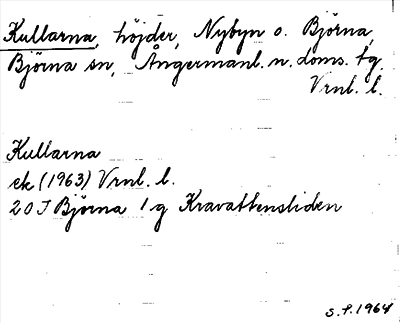 Kullarna, höjder, Nybyn o. Björna,
Björna sn, Ångermanl. n. doms. tg.
Vrnl. l.
Kullarna
ek (1963) Vrnl. l.
20 J Björna 1 g Kravattensliden
S. F. 1964